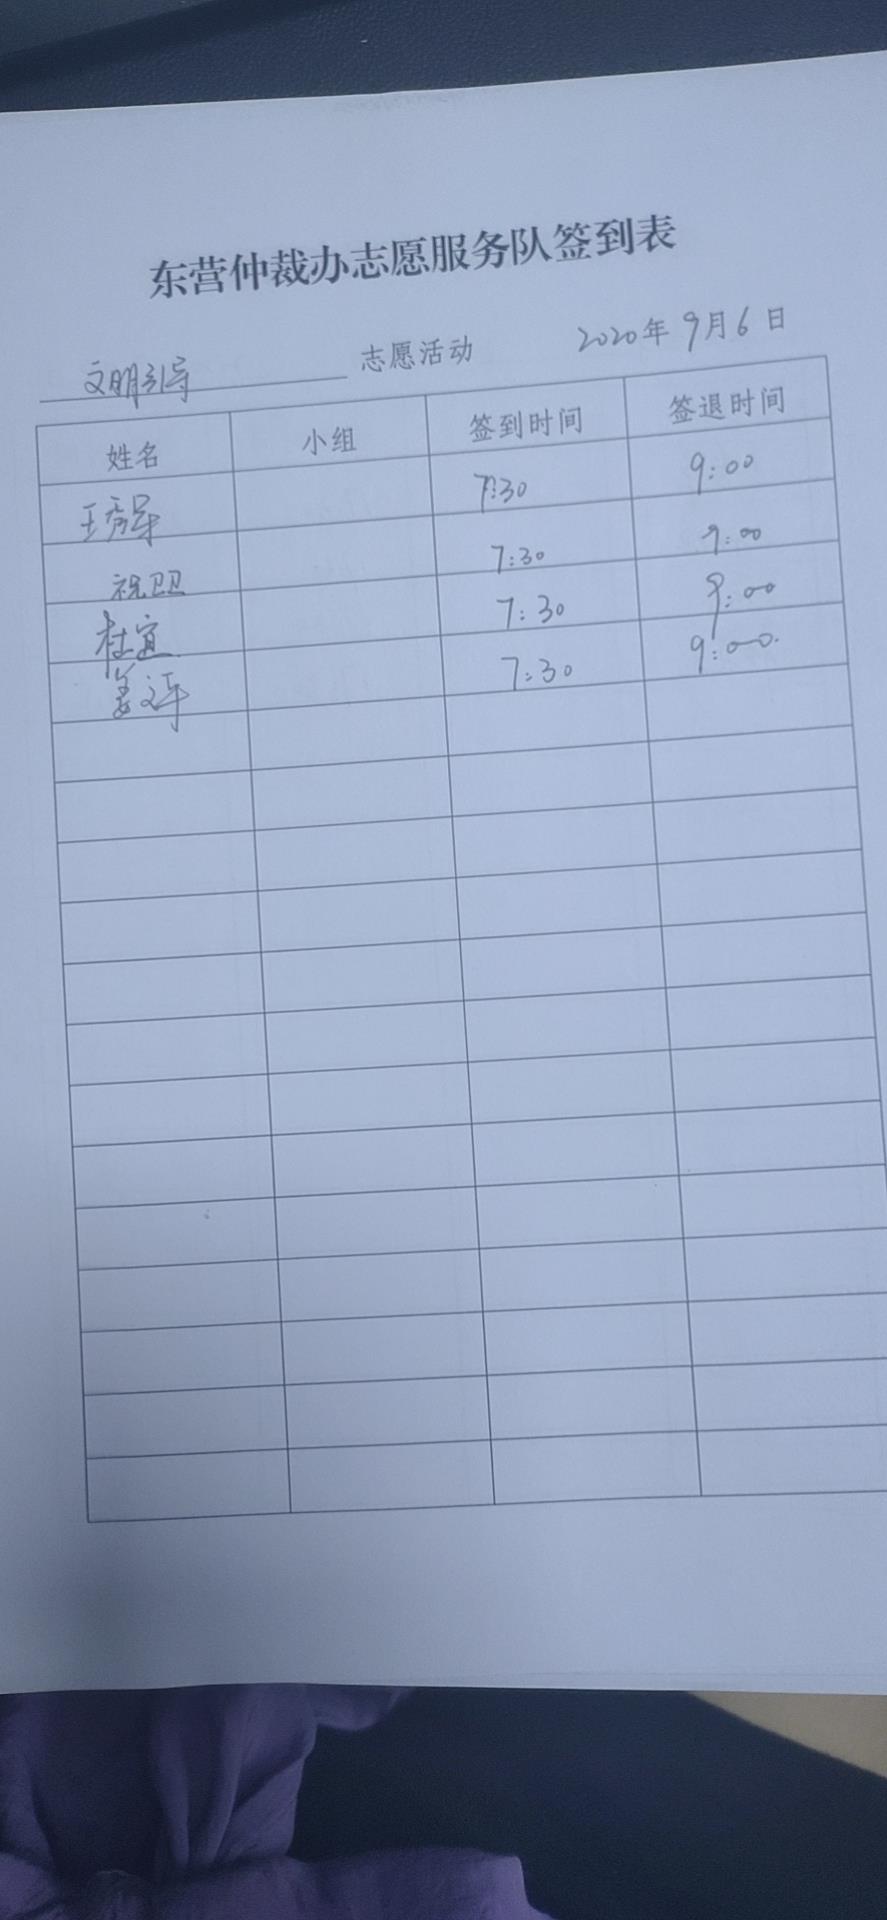 东营仲裁办志愿服务队签到表
文明引导 志愿活动 2020年9月6日
姓名 小组 签到时间 签退时间
王秀军 7:30 9:00
祝卫卫 7:30 9:00
杜宜 7:30 9:00
姜文 7:30 9:00